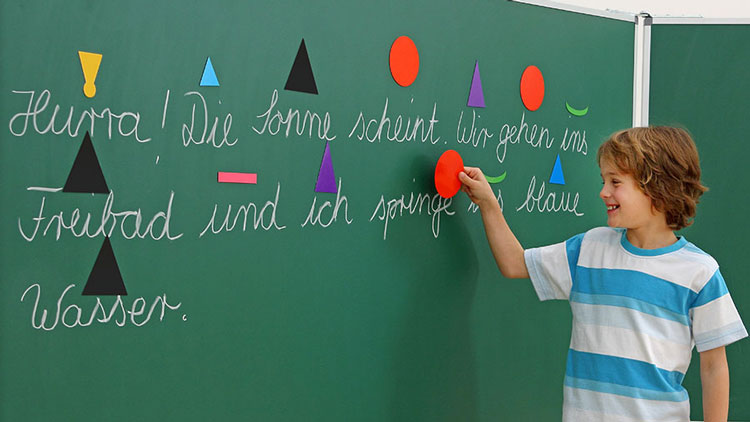 Hurra! Die Sonne scheint. Wir gehen ins
Freibad und ich springe ins blaue
Wasser.